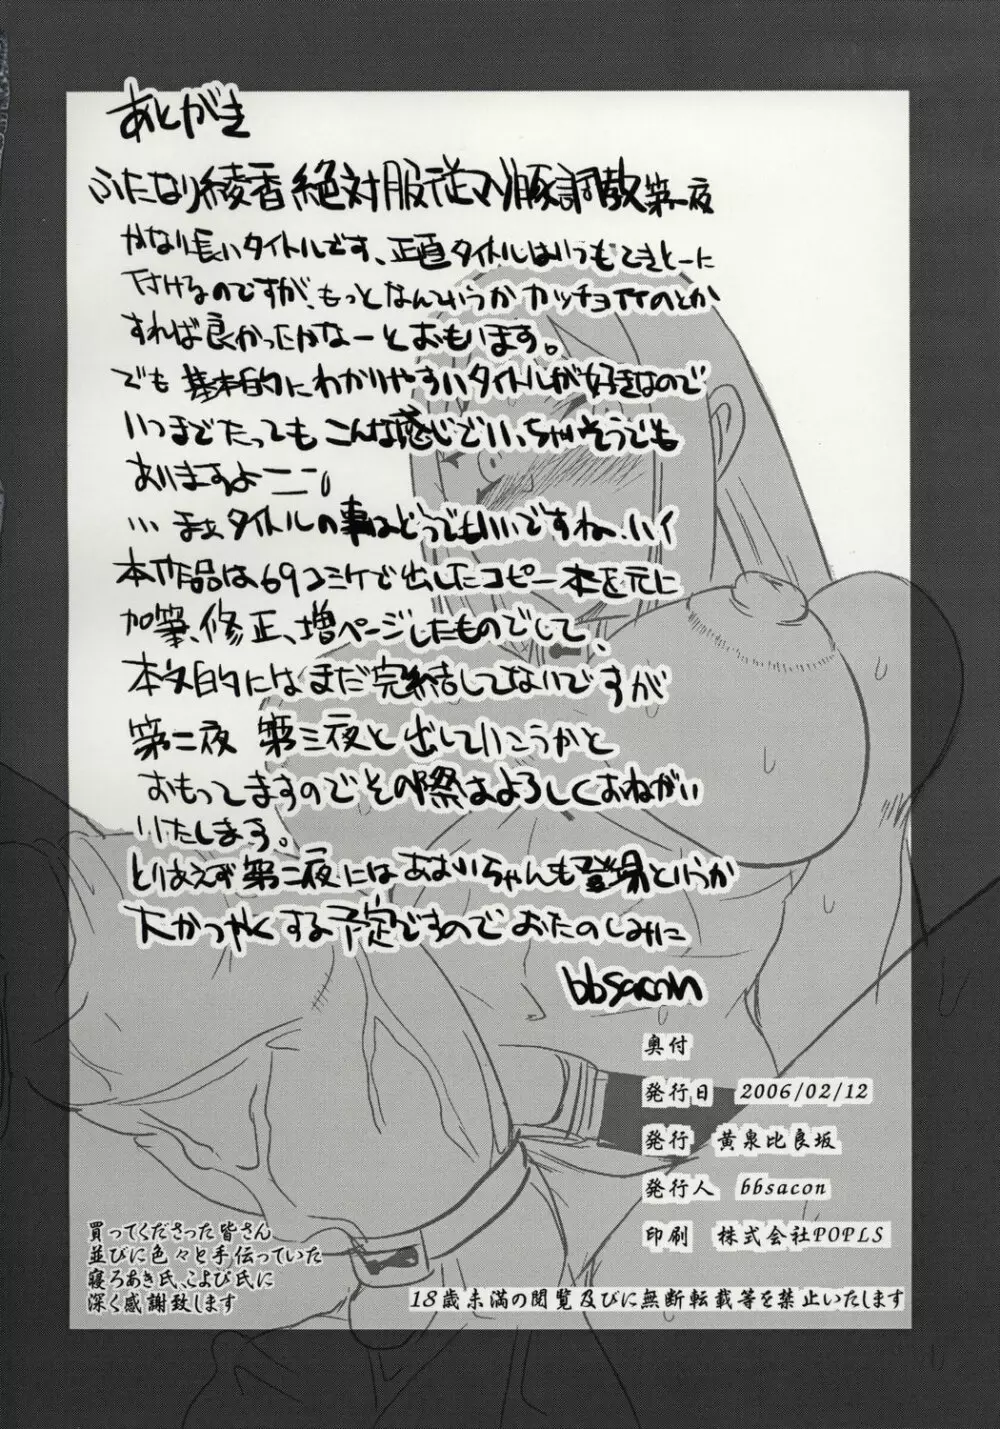 あとがき
ふたなり綾香絶対服従マゾ豚調教第一夜
かなり長いタイトルです、正直タイトルはいつもてきとーに
下付けるのですが、もっとなんていうかカッチョイイのとか
すれば良かったかなーとおもいます。
でも基本的にわかりやすいタイトルが好きなので
いつまでたってもこんな感じでいっちゃいそうでも
ありますよ
まぁタイトルの事はどうでもいいですね、ハイ
本作品は69コミケで出したコピー本を元に
加筆、修正、増ページしたものでして、
本文的にはまだ完結してないですが
第二夜 第三夜と出していこうかと
おもってますのでその際はよろしくおねがい
いたします。
とりあえず第二夜にはあおいちゃんも登場というか
大かつやくする予定ですのでおたのしみに
bbsacon
奥付
発行日 2006/02/12
発行 黄泉比良坂
発行人 bbsacon
印刷 株式会社POPLS
買ってくださった皆さん
並びに色々と手伝っていた
寝ろあき氏、こよび氏に
深く感謝致します
18歳未満の閲覧及びに無断転載等を禁止いたします